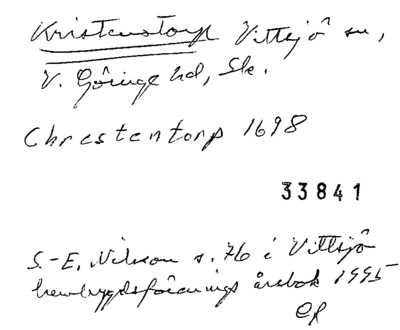 Kristenstorp Vittsjö sn,
V. Göinge hd, Sk.
Chrestentorp 1698
33841
S.-E. Nilsson s. 76 i Vittsjö
hembygdsförenings årsbok 1995